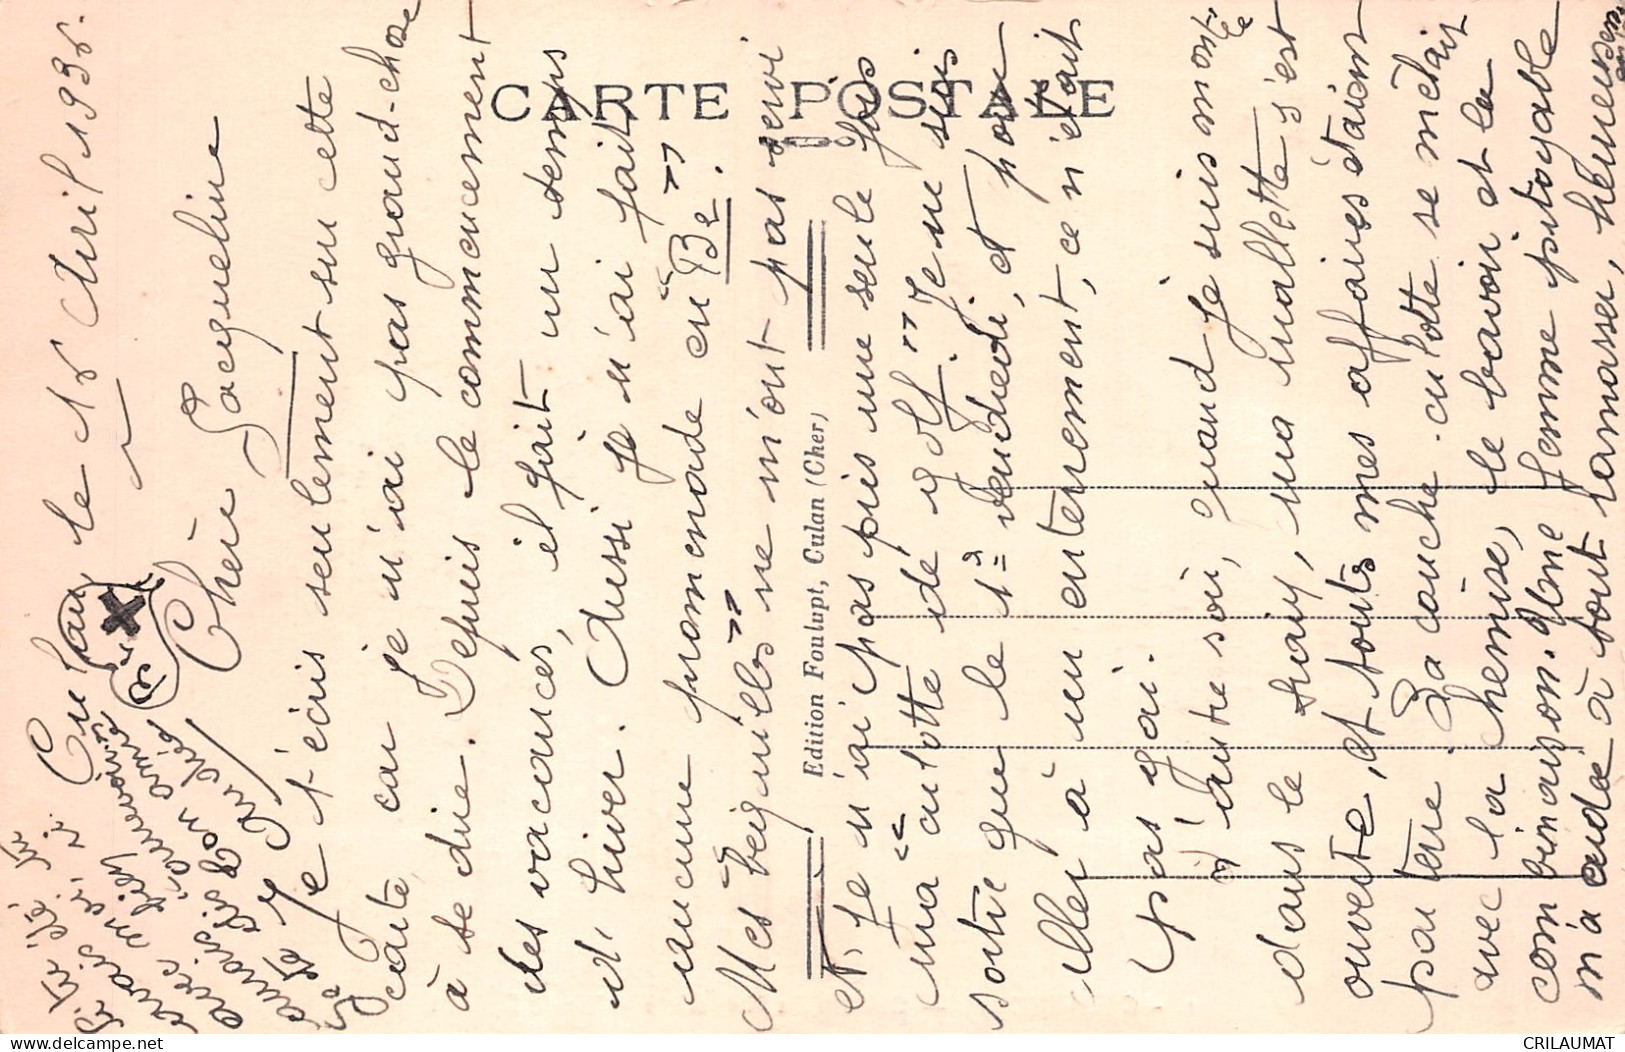 CARTE POSTALE
Edition Foulupt, Culan (Cher)
Culan, le 15 Avril 1935.
Chère Jacqueline
Je t'écris seulement sur cette
carte, car je n'ai pas grand-chose
à te dire. Depuis le commencement
des vacances, il fait un temps
d'hiver. Aussi je n'ai fait
aucune promenade en "Be".
Mes "béquilles" ne m'ont pas servi
et je n'ai pas pris une seule fois
ma "culotte de golf". Je ne suis
sortie que le vendredi, et pour
aller à un enterrement, ce n'était
pas gai.
L'autre soir, quand je suis montée
dans le train, ma mallette s'est
ouverte, et toutes mes affaires étaient
par terre. La couche-culotte se mêlait
avec la chemise, le bavoir et la
combinaison. Une femme pitoyable
m'a aidée à tout ramasser, heureusement
Si tu
avec moi,
Ton amie
CRILAUMAT